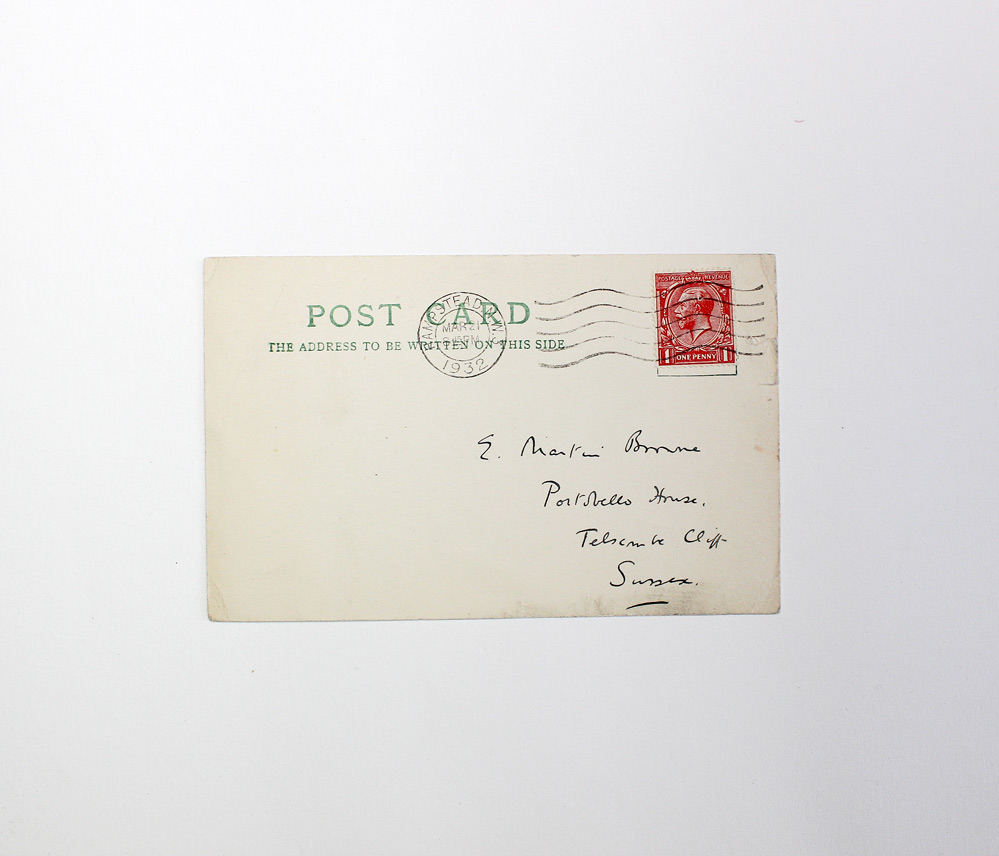 POST CARD
THE ADDRESS TO BE WRITTEN ON THIS SIDE
HAMPSTEAD N.W.3
MAR 21
1932
POSTAGE REVENUE
1 ONE PENNY 1
E. Martin Browne
Portobello House.
Telscombe Cliffs
Sussex.